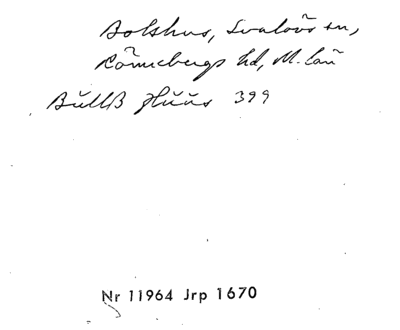 Bolshus, Svalövs sn,
Rönnebergs hd, M. län
BüllB Hüüs 399
Nr 11964 Jrp 1670